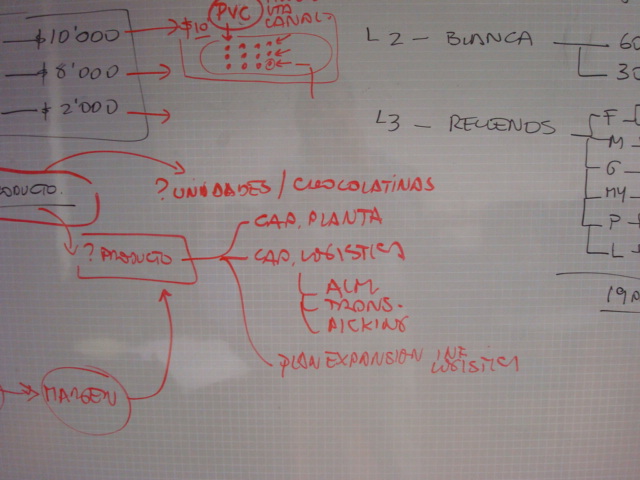 $10'000
$10
PVC
CANAL
$8'000
$2'000
L2 - BLANCA
60
30
L3 - RELLENOS
F
M
G
MY
P
L
19
ODUCTO.
? UNIDADES / CHOCOLATINAS
? PRODUCTO
CAP. PLANTA
CAP. LOGISTICA
ALM
TRANS.
PICKING
PLAN EXPANSION INF LOGISTICA
MARGEN